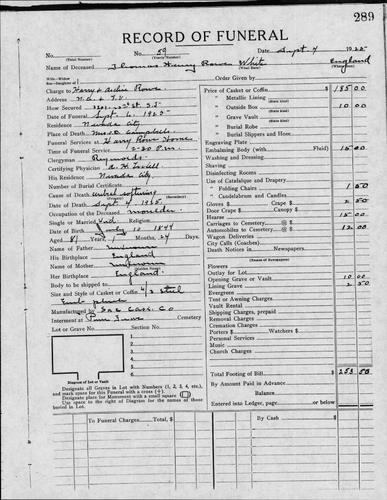 289
RECORD OF FUNERAL
No. No. 59 Date Sept. 4 1925
(Total Number) (Yearly Number)
Name of Deceased Thomas Henry Rowe White England
(What Race) (Where Born)
Wife—Widow
Son—Daughter of
Charge to Harry & Archie Rowe
Address
How Secured
Date of Funeral Sept. 6, 1925
Residence Nevada City
Place of Death Mrs. D. Campbell
Funeral Services at Harry Rowe Home
Time of Funeral Service 2-30 P.M.
Clergyman Reynolds
Certifying Physician
His Residence Nevada City
Number of Burial Certificate
Cause of Death
Date of Death Sept 4 1925
Occupation of the Deceased
Single or Married Wid. Religion
Date of Birth July 10 1844
Aged 81 Years, Months, 24 Days
Name of Father unknown
His Birthplace England
Name of Mother unknown
(Maiden Name)
Her Birthplace England
Body to be shipped to
Size and Style of Casket or Coffin 6/3 steel
Manufactured by
Interment at Pine Grove Cemetery
Lot or Grave No. Section No.
1
2
3
4
5
6
Diagram of Lot or Vault
Designate all Graves in Lot with Numbers (1, 2, 3, 4, etc.),
and mark space for this Funeral with a cross (+).
Designate place for Monument with a small square
Use space to the right of Diagram for the names of those
buried in Lot.
Order Given by
Price of Casket or Coffin $185.00
" Metallic Lining
(State Kind)
" Outside Box 10.00
(State Kind)
" Grave Vault
(State Kind)
" Burial Robe
(State Kind)
" Burial Slippers and Hose
Engraving Plate
Embalming Body (with Fluid) 15.00
Washing and Dressing
Shaving
Disinfecting Rooms
Use of Catafalque and Drapery
" Folding Chairs 1 50
" Candelabrum and Candles
Gloves $ Crape $ 2 50
Door Crape $ Canopy $
Hearse 15.00
Carriages to Cemetery @ $
Automobiles to Cemetery @ $ 12 00
Wagon Deliveries
City Calls (Coaches)
Death Notices in Newspapers
(Names of Newspapers)
Flowers
Outlay for Lot
Opening Grave or Vault 10 00
Lining Grave 2 50
Evergreen
Tent or Awning Charges
Vault Rental
Shipping Charges, prepaid
Cremation Charges
Porters $ Watchers $
Personal Services
Music
Church Charges
Total Footing of Bill $253 50
By Amount Paid in Advance
Balance
Entered into Ledger, page or below.
To Funeral Charges. Total, $
By Cash $